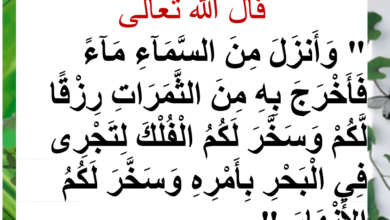 قال الله تعالى
" وَأَنزَلَ مِنَ السَّمَآءِ مَآءً
فَأَخْرَجَ بِهِ مِنَ الثَّمَرَاتِ رِزْقًا
لَّكُمْ وَسَخَّرَ لَكُمُ الْفُلْكَ لِتَجْرِى
فِي الْبَحْرِ بِأَمْرِهِ وَسَخَّرَ لَكُمُ